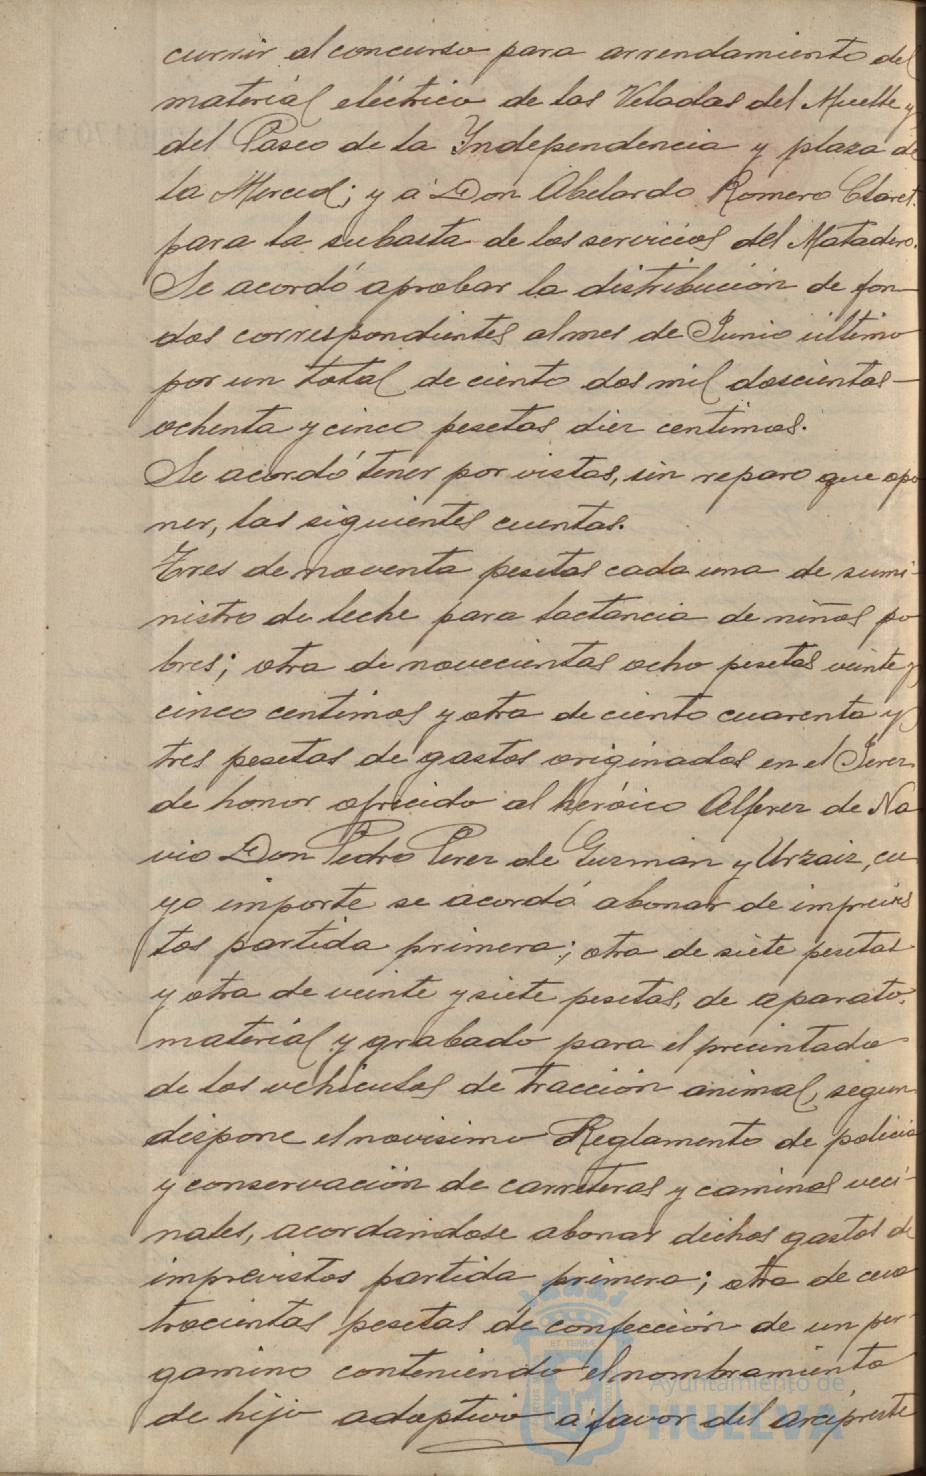 currir al concurso para arrendamiento del
material eléctrico de las Veladas del Muelle y
del Paseo de la Yndependencia y plaza de
la Merced; y á Don Abelardo Romero Claret
para la subasta de los servicios del Matadero.
Se acordó aprobar la distribución de fon-
dos correspondientes al mes de Junio último
por un total de ciento dos mil doscientas
ochenta y cinco pesetas diez centimos.
Se acordó tener por vistas, sin reparo que opo
ner, las siguientes cuentas.
Tres de noventa pesetas cada una de sumi-
nistro de leche para lactancia de niños po
bres; otra de novecientas ocho pesetas veinte y
cinco centimos y otra de ciento cuarenta y
tres pesetas de gastos originados en el Jerez
de honor ofrecido al heróico Alferez de Na
vio Don Pedro Perez de Guzman y Urzaiz, cu
yo importe se acordó abonar de imprevis
tos partida primera; otra de siete pesetas
y otra de veinte y siete pesetas, de aparato,
material y grabado para el precintado
de los vehiculos de tracción animal, segun
dispone el novisimo Reglamento de policia
y conservación de carreteras y caminos veci-
nales, acordandose abonar dichos gastos de
imprevistos partida primera; otra de cua
trocientas pesetas de confección de un per-
gamino conteniendo el nombramiento
de hijo adoptivo a favor del arcipreste
Ayuntamiento de
HUELVA